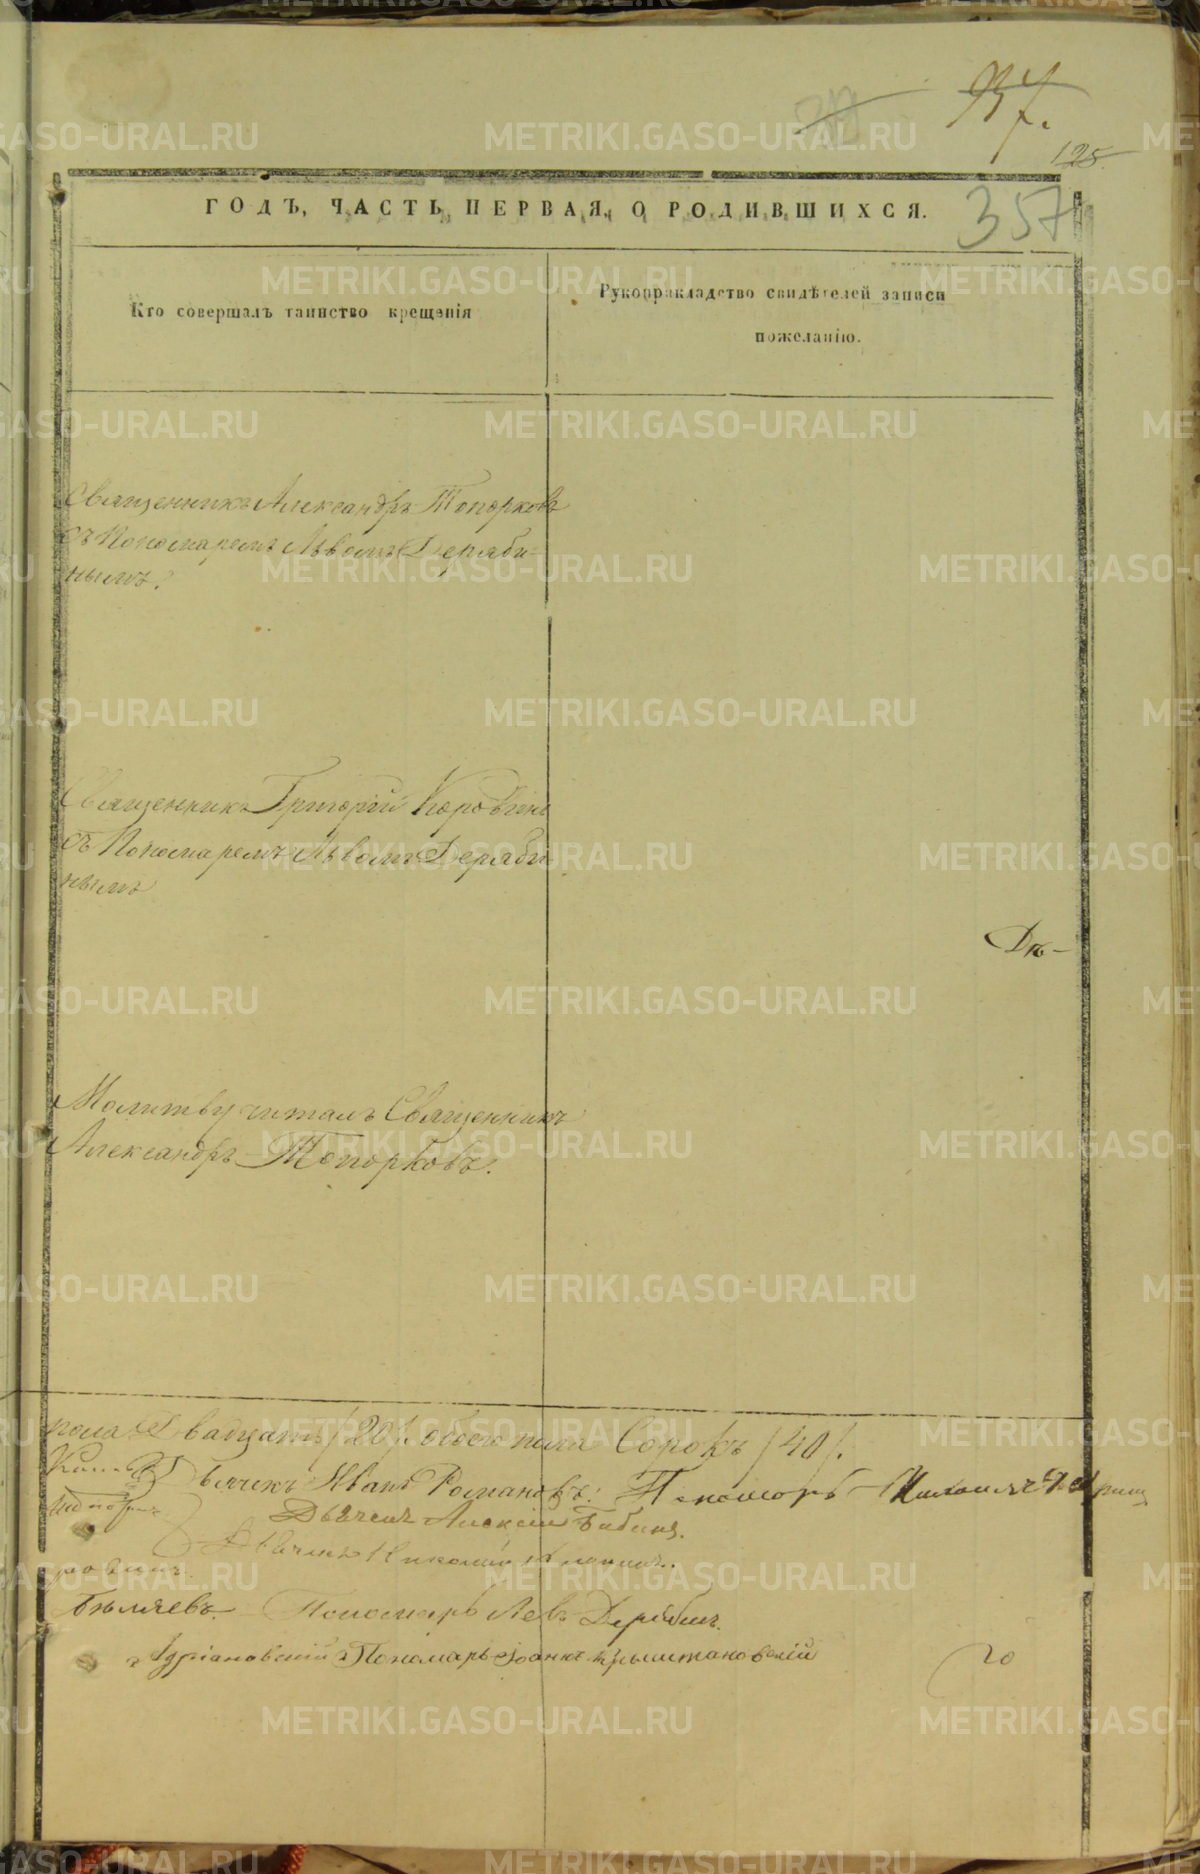 125
357
ГОДЪ, ЧАСТЬ ПЕРВАЯ, О РОДИВШИХСЯ.
Кто совершалъ таинство крещенія
Рукоприкладство свидѣтелей записи
пожеланію.
Священникъ Александръ Топорковъ
съ Пономаремъ Львомъ Деряби-
нымъ.
Священникъ Григорій Коровинъ
съ Пономаремъ Львомъ Деряби
нымъ
Дѣ-
Молитву читалъ Священникъ
Александръ Топорковъ.
пола Двадцать /20/. обоего пола Сорокъ /40/.
Дьячекъ Иванъ Романовъ. Пономарь
Дьячекъ Алексѣй Бабинъ.
Дьячекъ Николай
Бѣляевъ. Пономарь Левъ Дерябинъ.
Адріановскій Пономарь Іоаннъ
20
METRIKI.GASO-URAL.RU